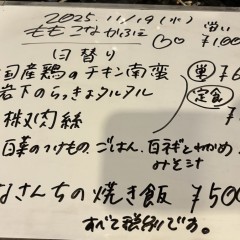 2025.11/19(水)
ももこなかふに
日替り
国産鶏のチキン南蛮
岩下のらっきょタルタル
単
定食
肉絲
白菜のつけもの、ごはん、白ネギとわかめ
みそ汁
なさんちの焼き飯 ¥500
すべて税別です。